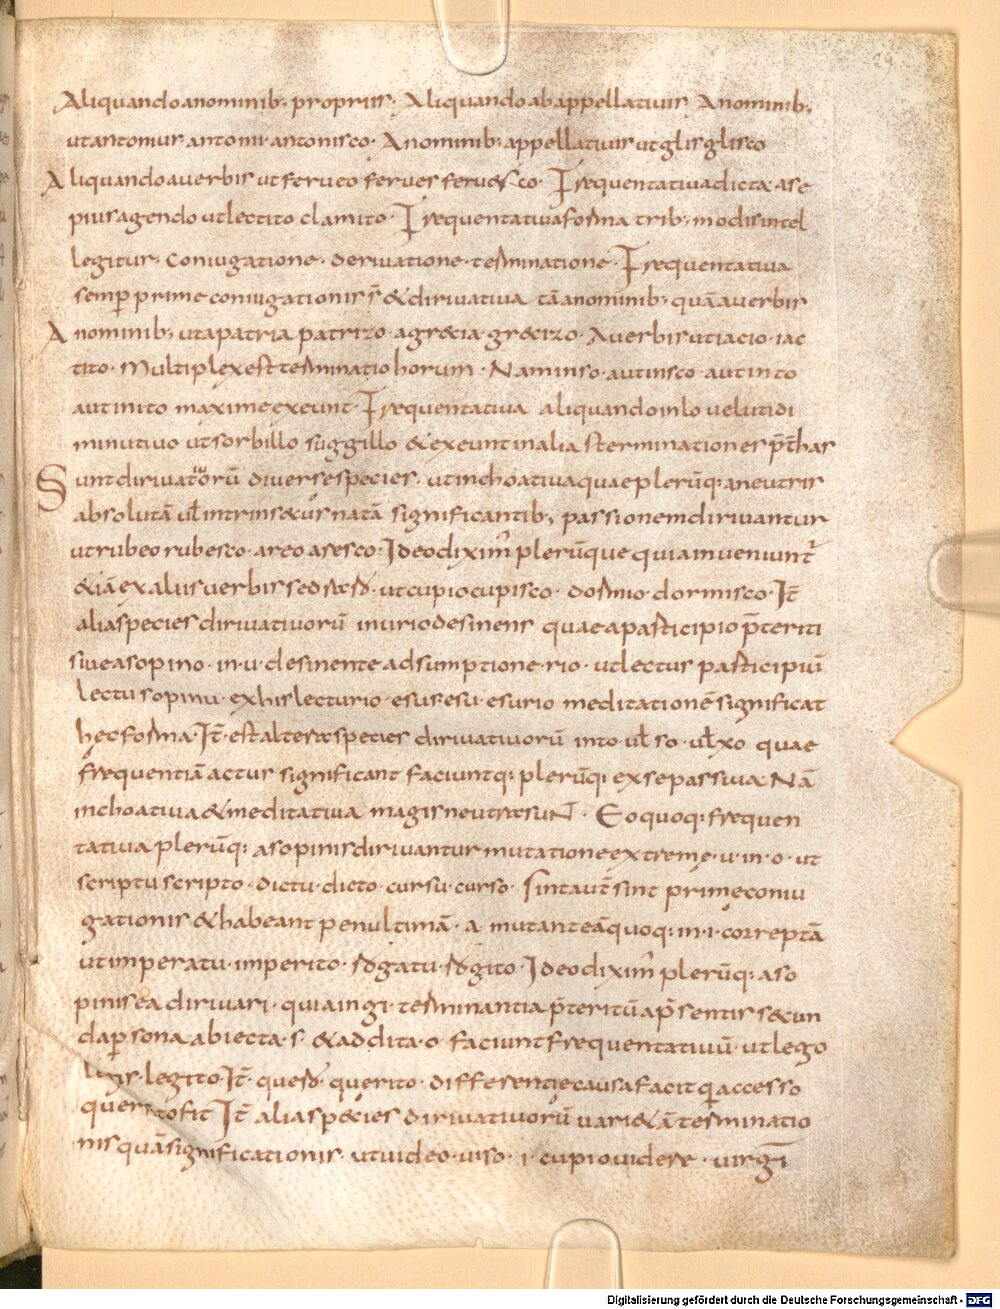 29
Aliquando a nominib; propriis. Aliquando ab appellativis. A nominib;
ut antonius antonii. antonisco. A nominib; appellativis ut glis glisco
Aliquando a verbis ut ferveo ferves fervesco. Frequentativa dicta. a se
pius agendo ut lectito clamito. Frequentativa forma trib; modis intel
legitur. Coniugatione. derivatione. terminatione. Frequentativa
semp prime coniugationis s̄ & dirivativa tā a nominib; quā a verbis
A nominib; ut a patria patrizo. a grecia. grecizo. A verbis ut iacio. iac
tito. Multiplex est terminatio horum. Nam in so. aut in sco. aut in to
aut in ito maxime exeunt. Frequentativa aliquando in lo velut idi
minutivo ut sorbillo suggillo & exeunt in alias terminationes p̄t has
Sunt dirivatorū diverse species. ut inchoativa quae plerūq; a neutris
absolutā ul̄ intrinsecus natā significantib; passionem dirivantur
ut rubeo rubesco. areo aresco. Ideo diximꝰ plerūque quia inveniunt᷑
& iā ex aliis verbis sed raro. ut cupio cupisco. dormio dormisco. It̄
alia species dirivativorū in urio desinens quae a participio p̄teriti
sive a sopino. in .u. desinente adsumptione. rio. ut lectus participiū
lectu sopinu. ex his lecturio. esus esu. esurio meditationē significat
hec forma. It̄ est altera species dirivativorū in to ul̄ so. ul̄ xo quae
frequentiā actus significant faciuntq; plerūq; ex se passiva. Nā
inchoativa & meditativa magis neutra sunt. Eo quoq; frequen
tativa plerūq; a sopinis dirivantur mutatione extreme .u. in .o. ut
scriptu scripto. dictu. dicto. cursu. curso. Sint aut̄ sint prime coniu
gationis & habeant penultimā .a. mutante ā quoq; in .i. correptā
ut imperatu. imperito. rogatu. rogito. Ideo diximꝰ plerūq; a so
pinis ea dirivari. quia in gi. terminantia p̄teritū a p̄sentis secun
da psona abiecta .s. & addita .o. faciunt frequentativū. ut lego
legis. legito. It̄ quero. querito. differentie causa facit q̄ a accesso
fit It̄ alia species dirivativorū vari & ā terminatio
nis quā significationis. ut video. viso. i. cupio videre. virḡ
Digitalisierung gefördert durch die Deutsche Forschungsgemeinschaft - DFG